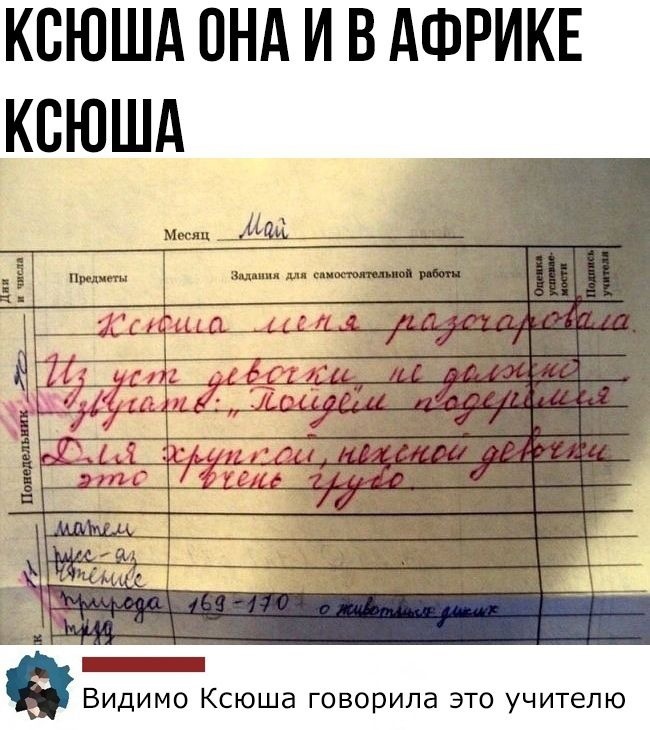 КСЮША ОНА И В АФРИКЕ
КСЮША
Месяц Май
Дни и числа
Предметы
Задания для самостоятельной работы
Оценка успевае-мости
Подпись учителя
Понедельник
Ксюша меня разочаровала.
Из уст девочки не должно
звучать: „Пойдём подерёмся
Для хрупкой, нежной девочки
это очень грубо.
матем
русс-яз
чтение
природа 169-170 о животных диких
труд
Видимо Ксюша говорила это учителю